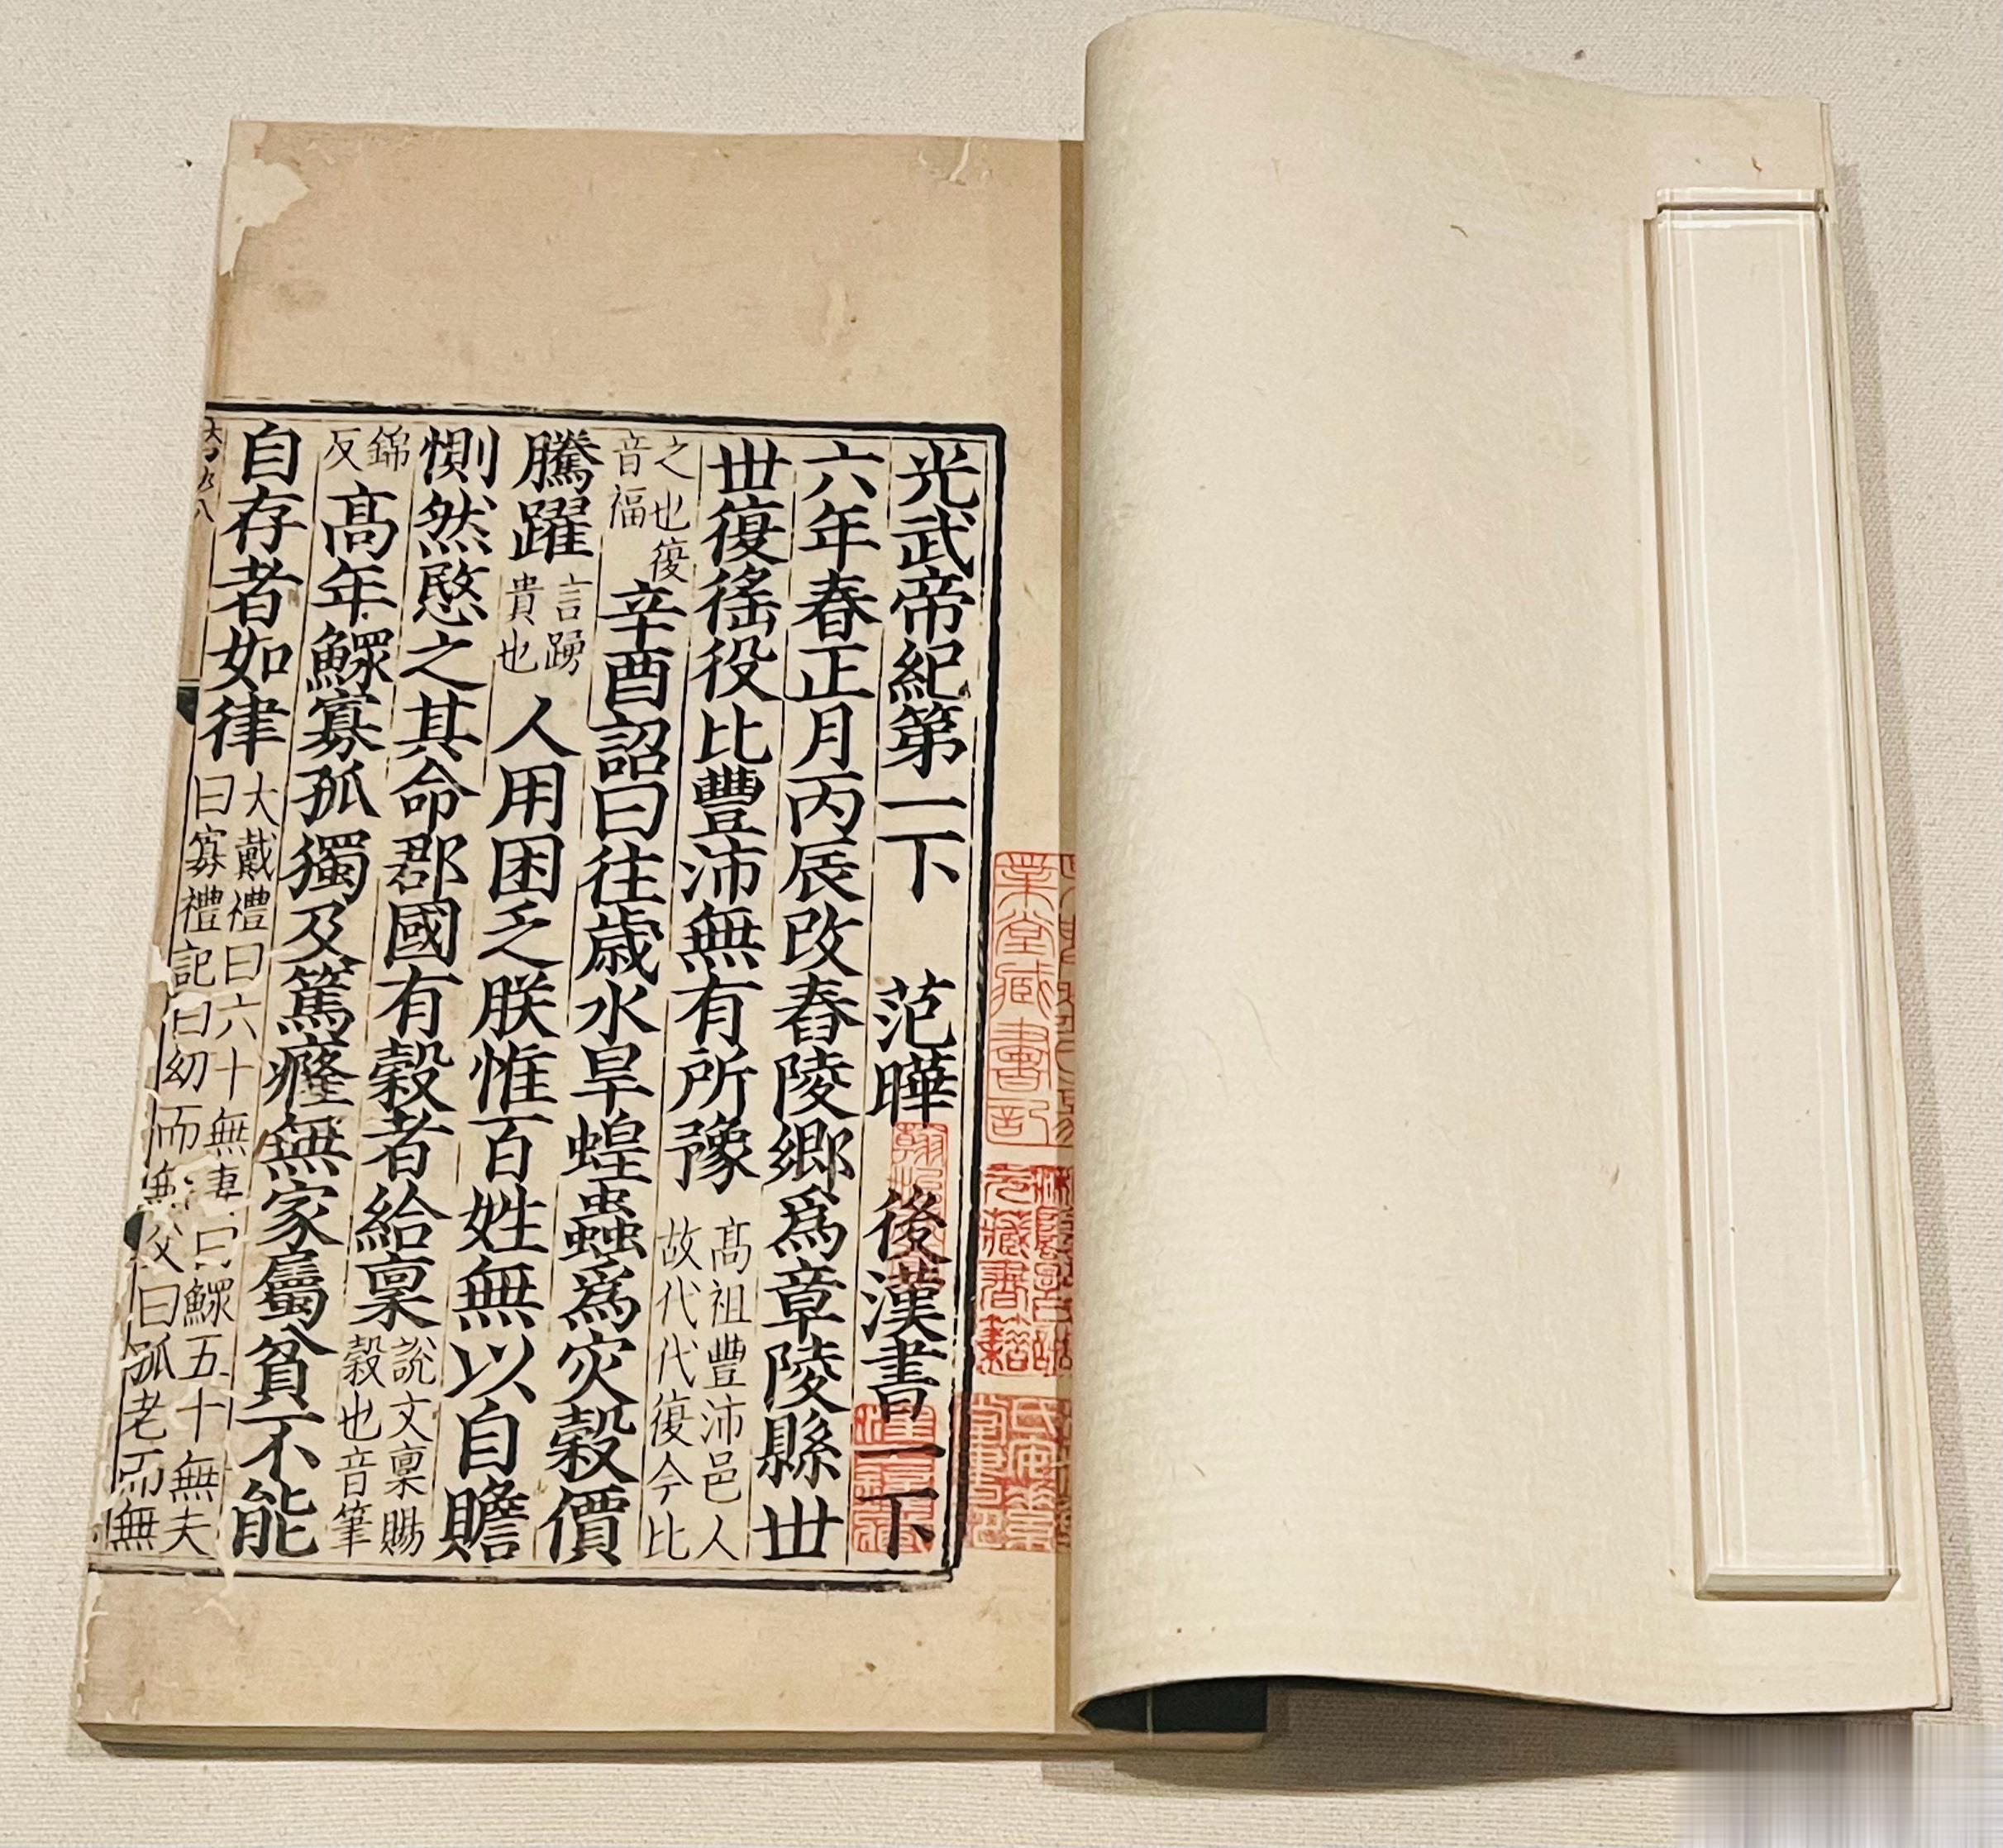 光武帝紀第一下 范曄 後漢書一下
六年春正月丙辰改舂陵鄉爲章陵縣世
世復徭役比豐沛無有所豫
高祖豐沛邑人
故代代復今比
之也復
音福
辛酉詔曰往歲水旱蝗蟲爲灾穀價
騰躍
言踴
貴也
人用困乏朕惟百姓無以自贍
惻然愍之其命郡國有穀者給稟
說文稟賜
穀也音筆
錦
反
高年鰥寡孤獨及篤癃無家屬貧不能
自存者如律
大戴禮曰六十無妻曰鰥五十無夫
曰寡禮記曰幼而無父曰孤老而無
業堂藏書記
藏書籍